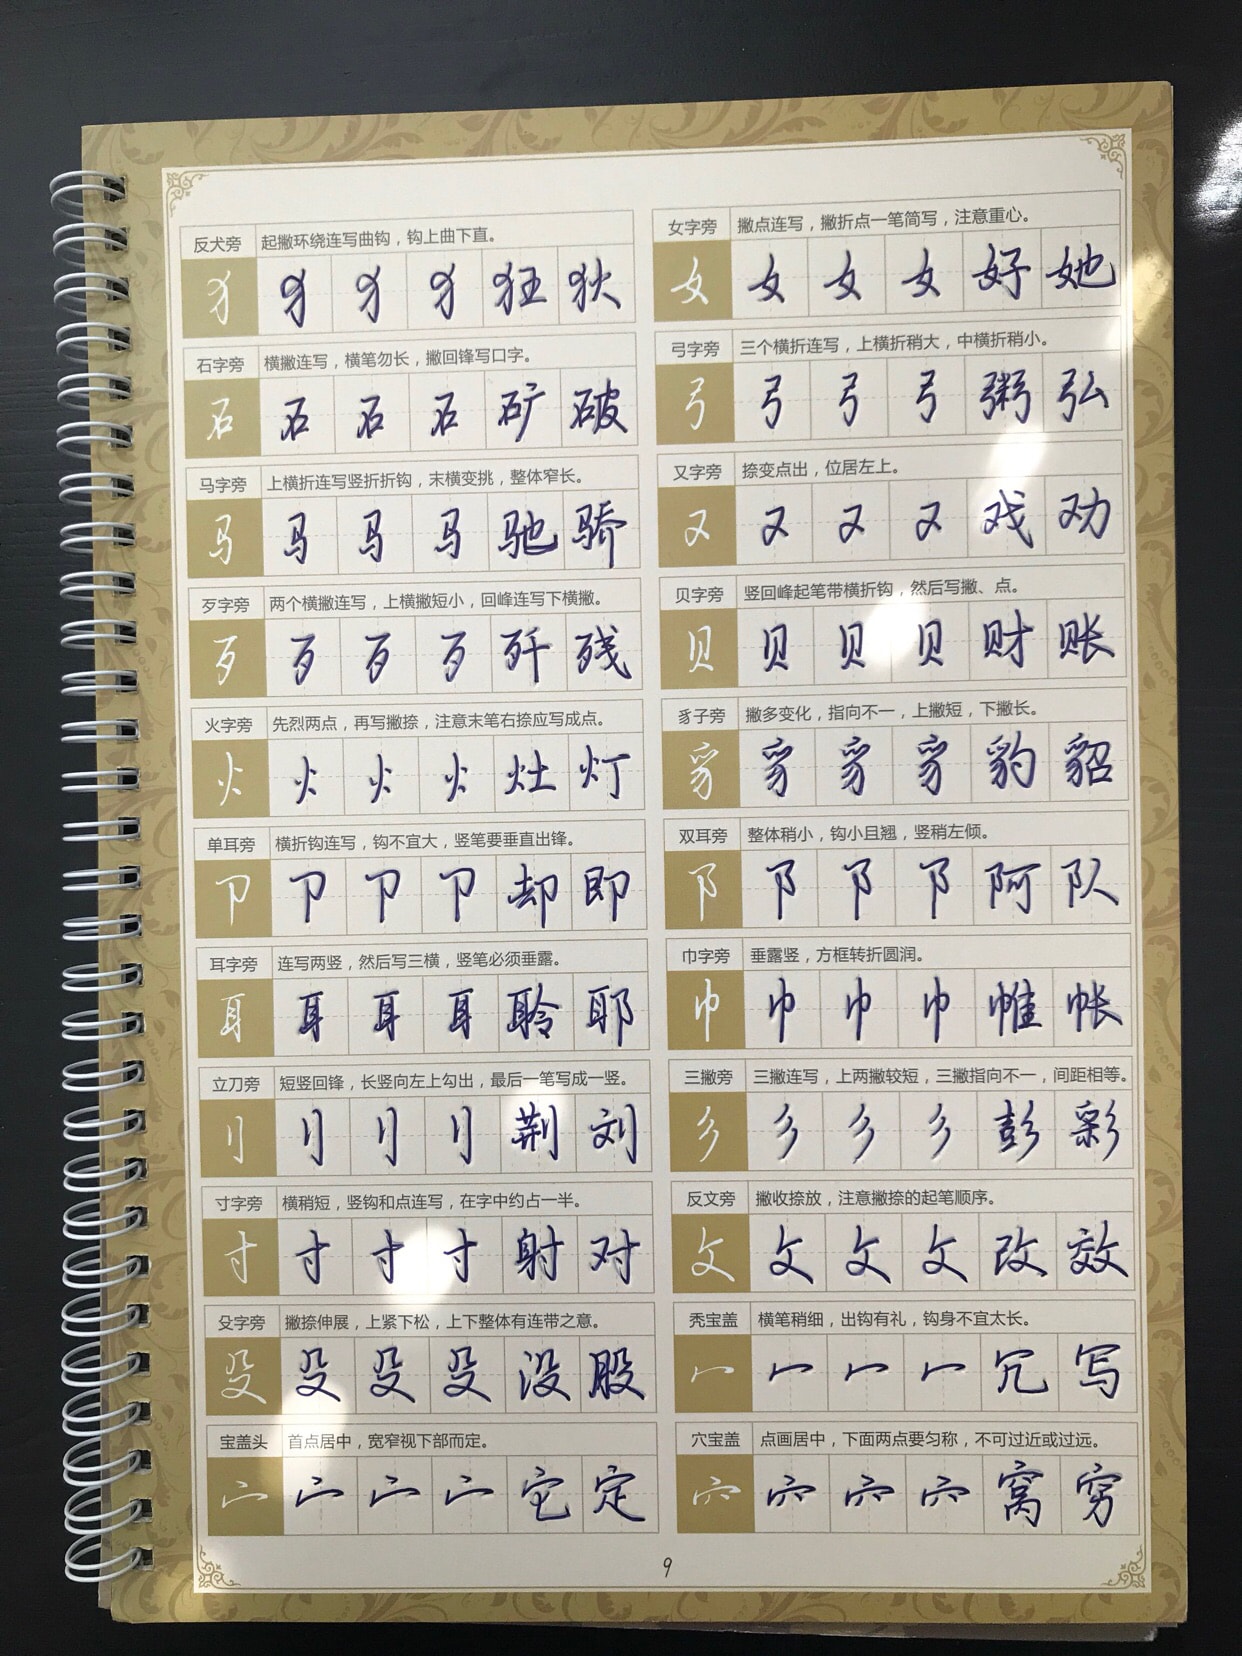 反犬旁 起撇环绕连写曲钩，钩上曲下直。
犭 犭 犭 犭 狂 狄
石字旁 横撇连写，横笔勿长，撇回锋写口字。
石 石 石 石 矿 破
马字旁 上横折连写竖折折钩，末横变挑，整体窄长。
马 马 马 马 驰 骄
歹字旁 两个横撇连写，上横撇短小，回峰连写下横撇。
歹 歹 歹 歹 歼 残
火字旁 先烈两点，再写撇捺，注意末笔右捺应写成点。
火 火 火 火 灶 灯
单耳旁 横折钩连写，钩不宜大，竖笔要垂直出锋。
卩 卩 卩 卩 却 即
耳字旁 连写两竖，然后写三横，竖笔必须垂露。
耳 耳 耳 耳 聆 耶
立刀旁 短竖回锋，长竖向左上勾出，最后一笔写成一竖。
刂 刂 刂 刂 荆 刘
寸字旁 横稍短，竖钩和点连写，在字中约占一半。
寸 寸 寸 寸 射 对
殳字旁 撇捺伸展，上紧下松，上下整体有连带之意。
殳 殳 殳 殳 没 股
宝盖头 首点居中，宽窄视下部而定。
宀 宀 宀 宀 它 定
女字旁 撇点连写，撇折点一笔简写，注意重心。
女 女 女 女 好 她
弓字旁 三个横折连写，上横折稍大，中横折稍小。
弓 弓 弓 弓 粥 弘
又字旁 捺变点出，位居左上。
又 又 又 又 戏 劝
贝字旁 竖回峰起笔带横折钩，然后写撇、点。
贝 贝 贝 贝 财 账
豸子旁 撇多变化，指向不一，上撇短，下撇长。
豸 豸 豸 豸 豹 貂
双耳旁 整体稍小，钩小且翘，竖稍左倾。
阝 阝 阝 阝 阿 队
巾字旁 垂露竖，方框转折圆润。
巾 巾 巾 巾 帷 帐
三撇旁 三撇连写，上两撇较短，三撇指向不一，间距相等。
彡 彡 彡 彡 彭 彩
反文旁 撇收捺放，注意撇捺的起笔顺序。
攵 攵 攵 攵 改 效
秃宝盖 横笔稍细，出钩有礼，钩身不宜太长。
冖 冖 冖 冖 冗 写
穴宝盖 点画居中，下面两点要匀称，不可过近或过远。
穴 穴 穴 穴 窝 穷
9